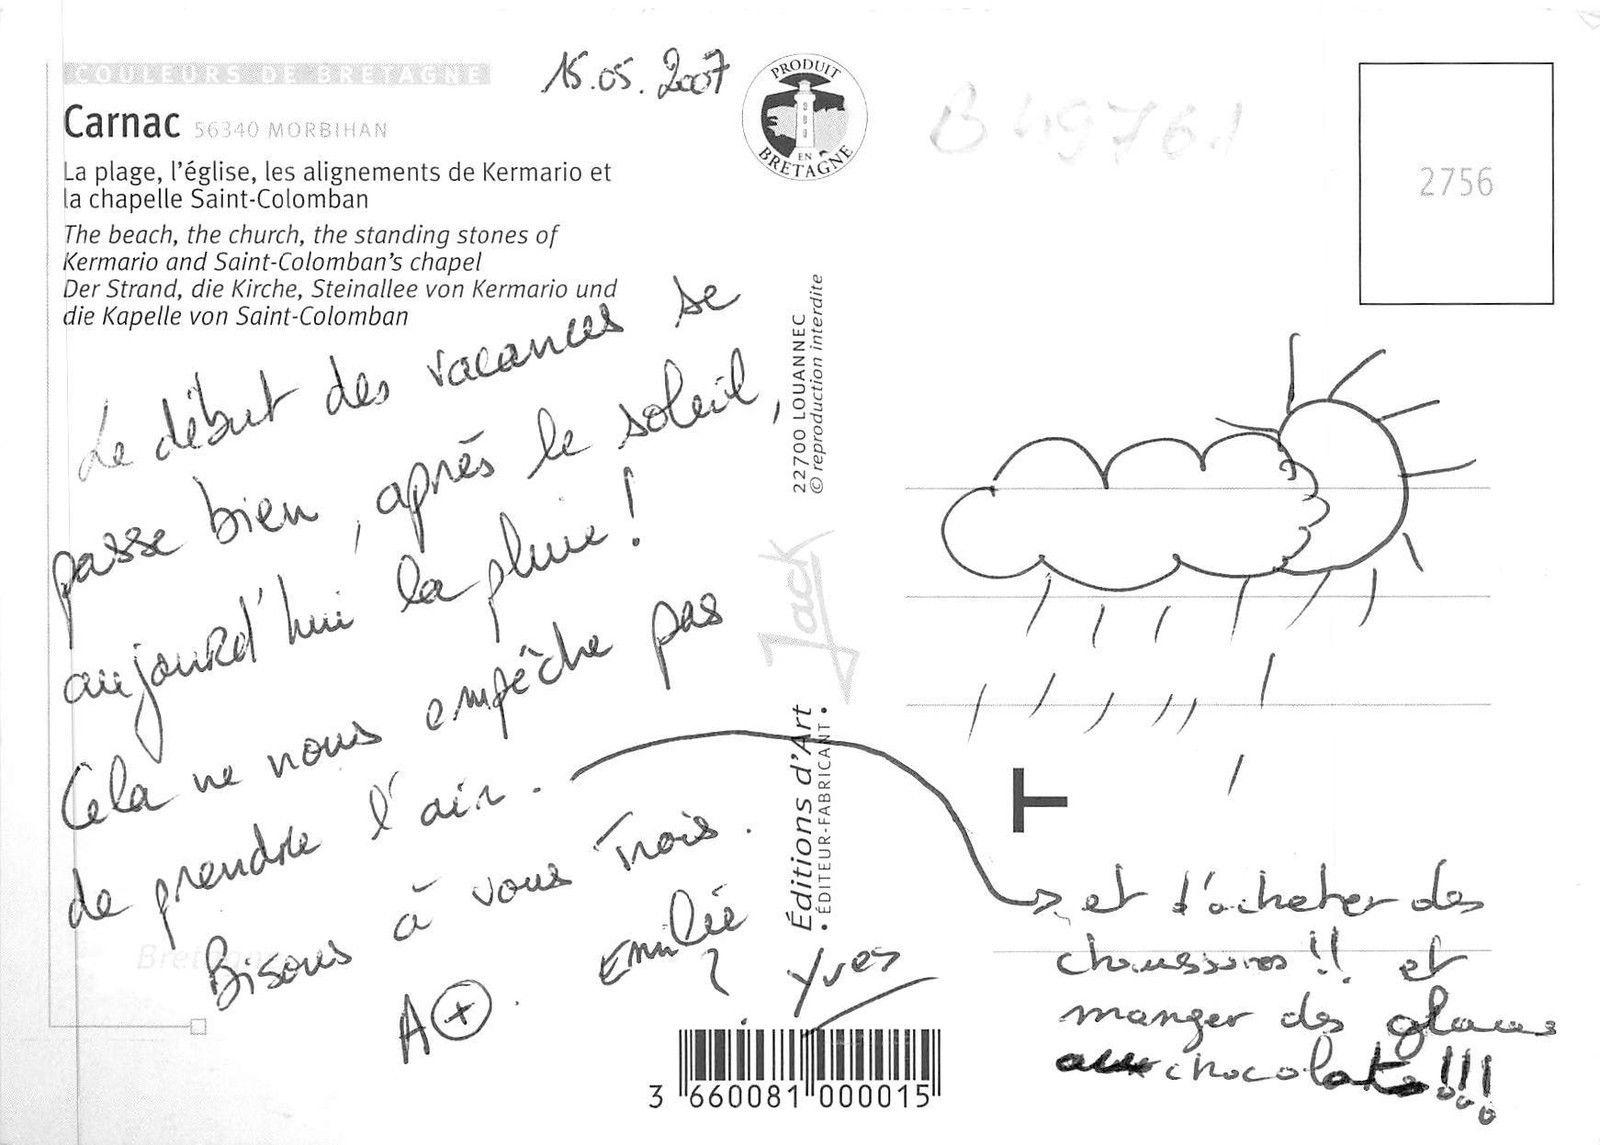 COULEURS DE BRETAGNE
Carnac 56340 MORBIHAN
La plage, l'église, les alignements de Kermario et
la chapelle Saint-Colomban
The beach, the church, the standing stones of
Kermario and Saint-Colomban's chapel
Der Strand, die Kirche, Steinallee von Kermario und
die Kapelle von Saint-Colomban
15.05.2007
PRODUIT
EN
BRETAGNE
B 49761
2756
Le début des vacances se
passe bien, après le soleil,
aujourd'hui la pluie !
Cela ne nous empêche pas
de prendre l'air.
Bisous à vous Trois.
A+. Emilie
Yves
22700 LOUANNEC
© reproduction interdite
Jack
Éditions d'Art
• ÉDITEUR-FABRICANT •
et d'acheter des
chaussures !! et
manger des glaces
au chocolat !!!
Bretagne
3 660081 000015